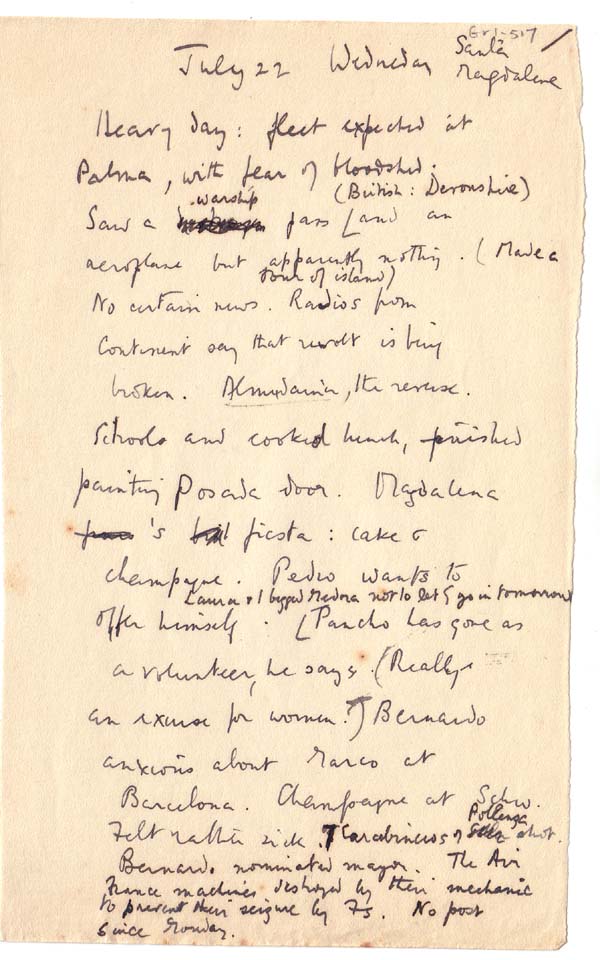 Gr1-517
July 22 Wednesday Santa
Magdalena
Heavy day: fleet expected at
Palma, with fear of bloodshed.
warship (British: Devonshire)
Saw a pass [and an
aeroplane but apparently nothing. (Made a
tour of island)
No certain news. Radios from
Continent say that revolt is being
broken. Almudaina, the reverse.
Schools and cooked lunch, finished
painting Posada door. Magdalena
's fiesta: cake &
champagne. Pedro wants to
Laura & I begged Medora not to let G go in tomorrow
offer himself. [Pancho has gone as
a volunteer, he says. (Really
an excuse for women.?) Bernardo
anxious about Marco at
Barcelona. Champagne at
Pollensa
Felt rather sick. 7 Carabineros of shot.
Bernardo nominated mayor. The Air
France machines destroyed by their mechanic
to prevent their seizure by Fs. No post
since Monday.